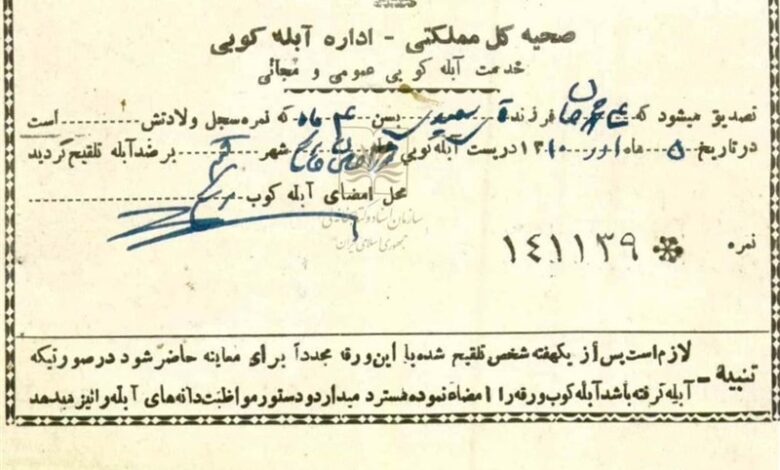 صحیه کل مملکتی - اداره آبله کوبی
خدمت آبله کوبی عمومی و مجانی
تصدیق میشود که فرزند سعیدی بسن ۴ ماه که نمره سجل ولادتش است
در تاریخ ۵ ماه ۱۳۱۰ در پست آبله کوبی شهر بر ضد آبله تلقیح گردید
محل امضای آبله کوب
سازمان اسناد و کتابخانه ملی
جمهوری اسلامی ایران
نمره ۱۴۱۱۳۹
تنبیه - لازم است پس از یکهفته شخص تلقیح شده با این ورقه مجدداً برای معاینه حاضر شود در صورتیکه
آبله گرفته باشد آبله کوب ورقه را امضاء نموده مسترد میدارد و دستور مواظبت دانه های آبله را نیز میدهد